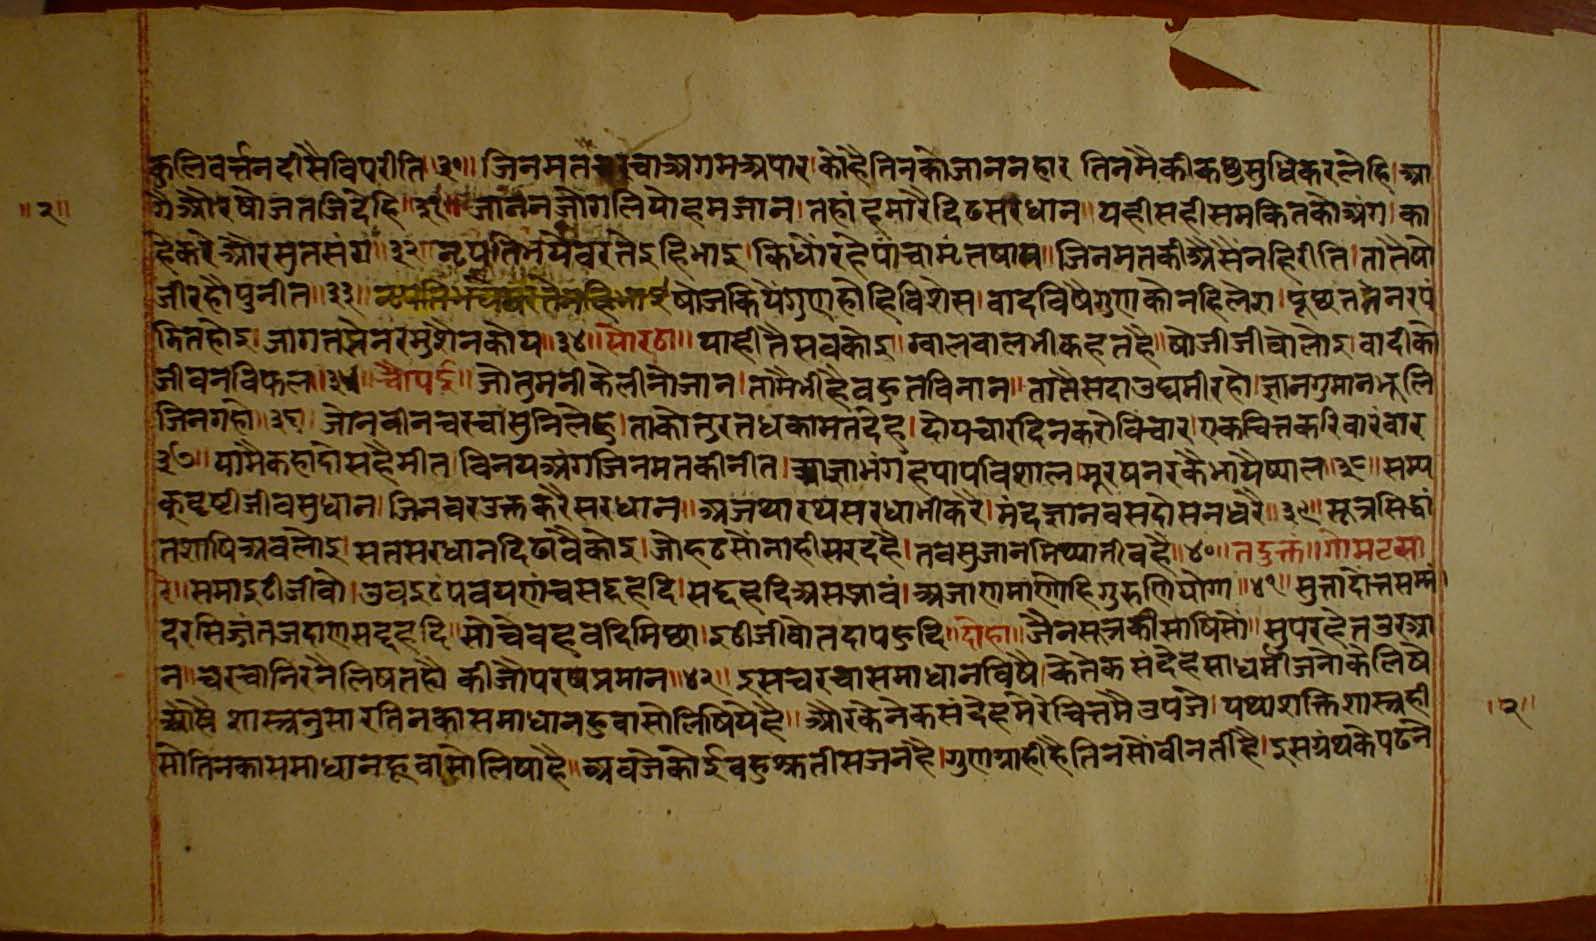 कलिवर्त्तनदीसैविपरीति॥३०॥ जिनमतचरचाअगमअपार।कोहैतिनकौजाननहार तिनमैकीकछुसुधिकरलेहि।आ
॥२॥
गैऔरषोजतजिदेहि॥३१॥ जाननजौगलियोहमजान।तहांहमारैदिढसरधान॥ यहीसहीसमकितकौअंग।का
हेकरैऔरसुतसंग॥३२॥ नृपतिभयेवरतेइहिभाइ।किधौंरहैपांचामृतषाय॥ जिनमतकीअैसैनहिरीति।तातैषो
जीरहौपुनीत॥३३॥ षोजकियैंगुणहोहिविशेस।वादविषैगुणकोनहिलेश। पूछतनैनरपं
डितहोइ।जागतनैनरमुशेनकोय॥३४॥ सोरठा॥ याहीतैसवकोइ।ग्वालवालभीकहतहै॥ षोजीजीवोलोइ।वादीकौ
जीवनविफल॥३५॥ चौपई॥ जोतुमनीकैलीनोजान।तामैभीहैवहुतविनान॥ तातैसदाउद्यमीरहो।ज्ञानगुमानभूलि
जिनगहौ॥३६॥ जोनवीनचरचासुनिलेहु।ताकोतुरतधकामतदेहु। दोयच्यारदिनकरोविचार।एकचित्तकरिवारंवार
३७॥ यामैकहादोसहैमीत।विनयअंगजिनमतकीनीत। आज्ञाभंगहपापविशाल।मूरषनरकैभायैष्याल॥३८॥ सम्य
कदृष्टीजीवसुधान।जिनवरउक्तकरैसरधान॥ अजथारथसरधाभीकरै।मंदज्ञानवसदोसनधरै॥३९॥ सूत्रसिद्धां
तशाषिअवलोइ।सतसरधानदिढावैकोइ।जोहटसौंनाहीसरदहै।तवसुजानमिथ्यातीवहै॥४०॥ तदुक्तं॥गोमटसा
रे॥ समाइठीजीवो।उवइटंपवयणंचसद्दहदि।सद्दहदिअसभ्भावं।अजाणमाणोहिगुरुणियोगा॥४१॥ सुत्तादोत्तसम्मं
दरसिज्जंतजदाणसद्दहदि॥सोचेवहवदिमिछा।इठीजीवोतदापहुदि॥दोहा॥ जैनसत्रकीसाषिसों।सुपरहेतउरआ
न॥ चरचानिरनैलिषतहौ कीजौपरषप्रमान॥४२॥ इसचरचासमाधानविषै।केतेकसंदेहसाधर्मीजनोकेलिषै
आयेथै शास्त्रनुसारतिनकासमाधानहुवासोलिषियेहै॥ औरकेतेकसंदेहमेरेचित्तमैउपजे।यथाशक्तिशास्त्रही
॥२॥
सौंतिनकासमाधानहूवासौलिषाहै॥ अवजेकोईवहुश्रुतीसजनहै।गुणग्राहीहैतिनसोंवीनतीहै।इसग्रंथकेपढनै